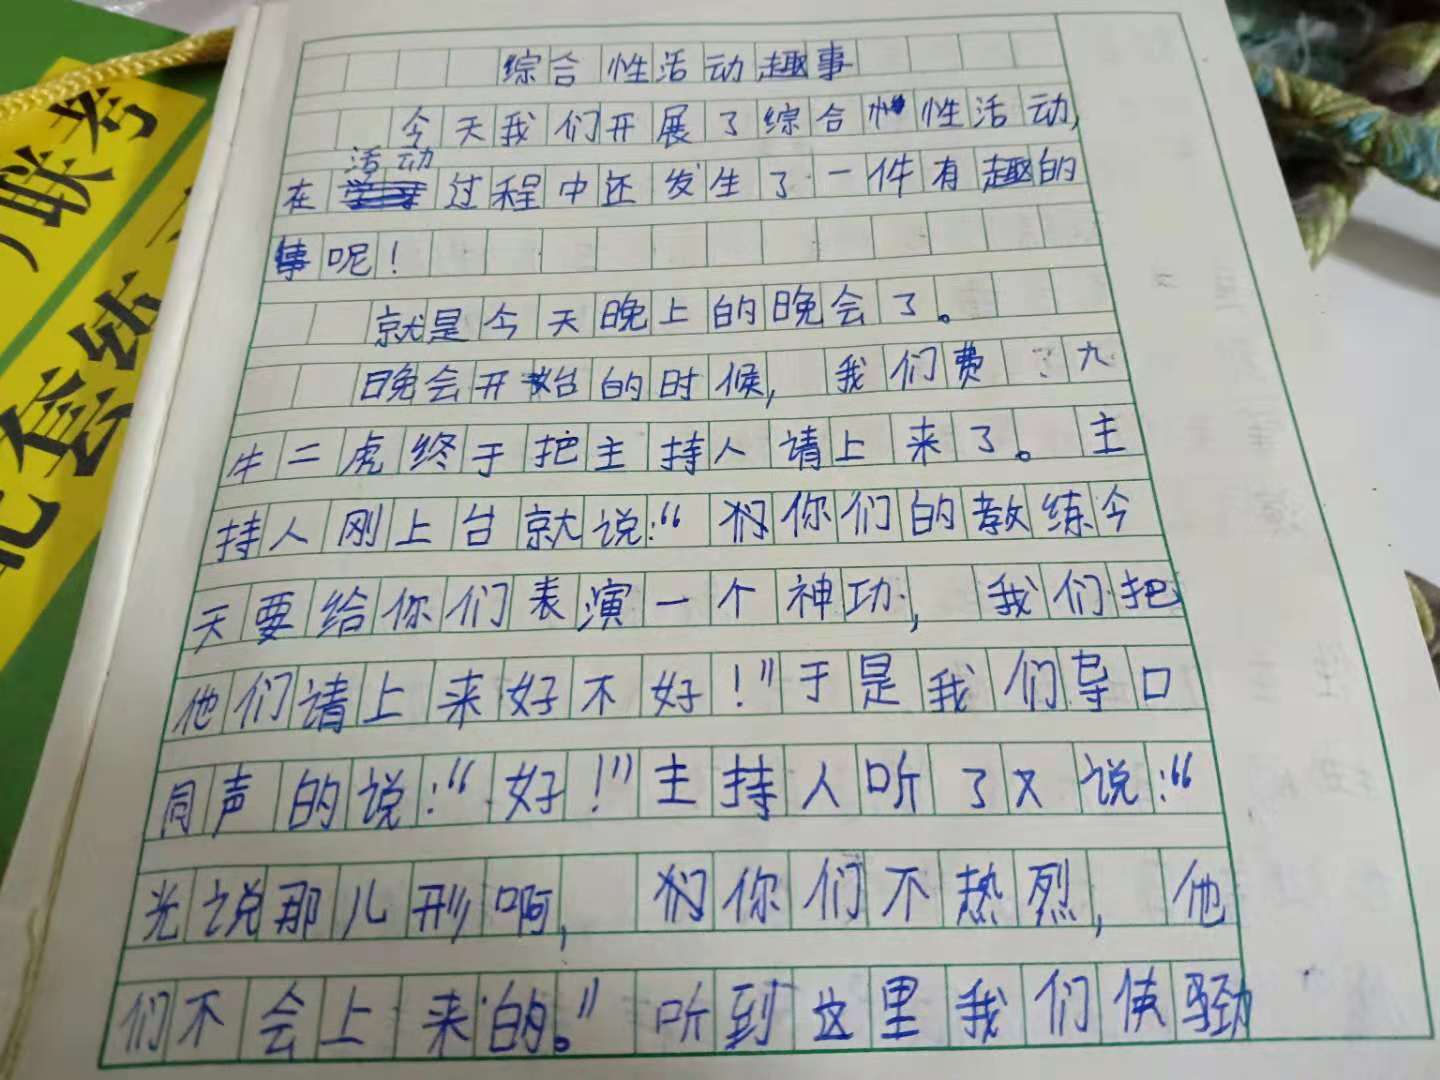 联考
套练
综合性活动趣事
今天我们开展了综合性活动,
活动
在过程中还发生了一件有趣的
事呢!
就是今天晚上的晚会了。
晚会开始的时候,我们费了九
牛二虎终于把主持人请上来了。主
持人刚上台就说:“你们的教练今
天要给你们表演一个神功,我们把
他们请上来好不好!”于是我们导口
同声的说:“好!”主持人听了又说:“
光说那儿形啊,你们不热烈,他
们不会上来的。”听到这里我们使劲